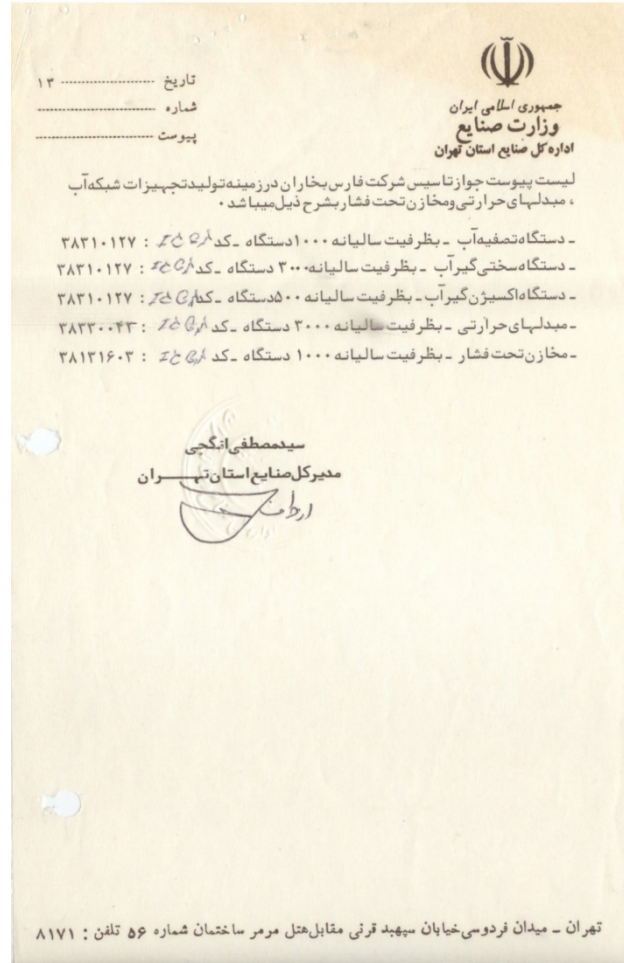 جمهوری اسلامی ایران
وزارت صنایع
اداره کل صنایع استان تهران
تاریخ ---------------- ۱۳
شماره ----------------
پیوست ----------------
لیست پیوست جواز تاسیس شرکت فارس بخاران در زمینه تولید تجهیزات شبکه آب
، مبدلهای حرارتی و مخازن تحت فشار بشرح ذیل میباشد .
- دستگاه تصفیه آب - بظرفیت سالیانه ۱۰۰۰ دستگاه - کد : ۳۸۳۱۰۱۲۷
- دستگاه سختی گیر آب - بظرفیت سالیانه ۳۰۰۰ دستگاه - کد : ۳۸۳۱۰۱۲۷
- دستگاه اکسیژن گیر آب - بظرفیت سالیانه ۵۰۰ دستگاه - کد : ۳۸۳۱۰۱۲۷
- مبدلهای حرارتی - بظرفیت سالیانه ۳۰۰۰ دستگاه - کد : ۳۸۳۳۰۰۴۳
- مخازن تحت فشار - بظرفیت سالیانه ۱۰۰۰ دستگاه - کد : ۳۸۱۳۱۶۰۳
سیدمصطفی انگجی
مدیر کل صنایع استان تهــــران
تهران - میدان فردوسی خیابان سپهبد قرنی مقابل هتل مرمر ساختمان شماره ۵۶ تلفن : ۸۱۷۱